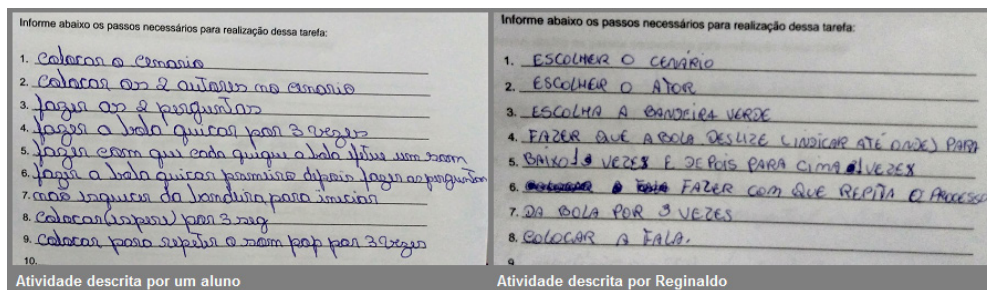 Informe abaixo os passos necessários para realização dessa tarefa:
1. colocar o cenario
2. colocar os 2 autores no cenario
3. fazer as 2 perguntas
4. fazer a bola quicar por 3 vezes
5. fazer com qui cada quique a bola um som
6. fazer a bola quicar primeiro depois fazer as perguntas
7. não da bandeira para iniciar
8. colocar por 3 seg
9. colocar para repetir o som pop por 3 vezes
10.
Atividade descrita por um aluno
Informe abaixo os passos necessários para realização dessa tarefa:
1. ESCOLHER O CENÁRIO
2. ESCOLHER O ATOR
3. ESCOLHA A BANDEIRA VERDE
4. FAZER QUE A BOLA DESLIZE (INDICAR ATÉ ONDE) PARA
5. BAIXO VEZES E DEPOIS PARA CIMA VEZES
6. FAZER COM QUE REPITA O PROCESSO
7. DA BOLA POR 3 VEZES
8. COLOCAR A FALA.
Atividade descrita por Reginaldo